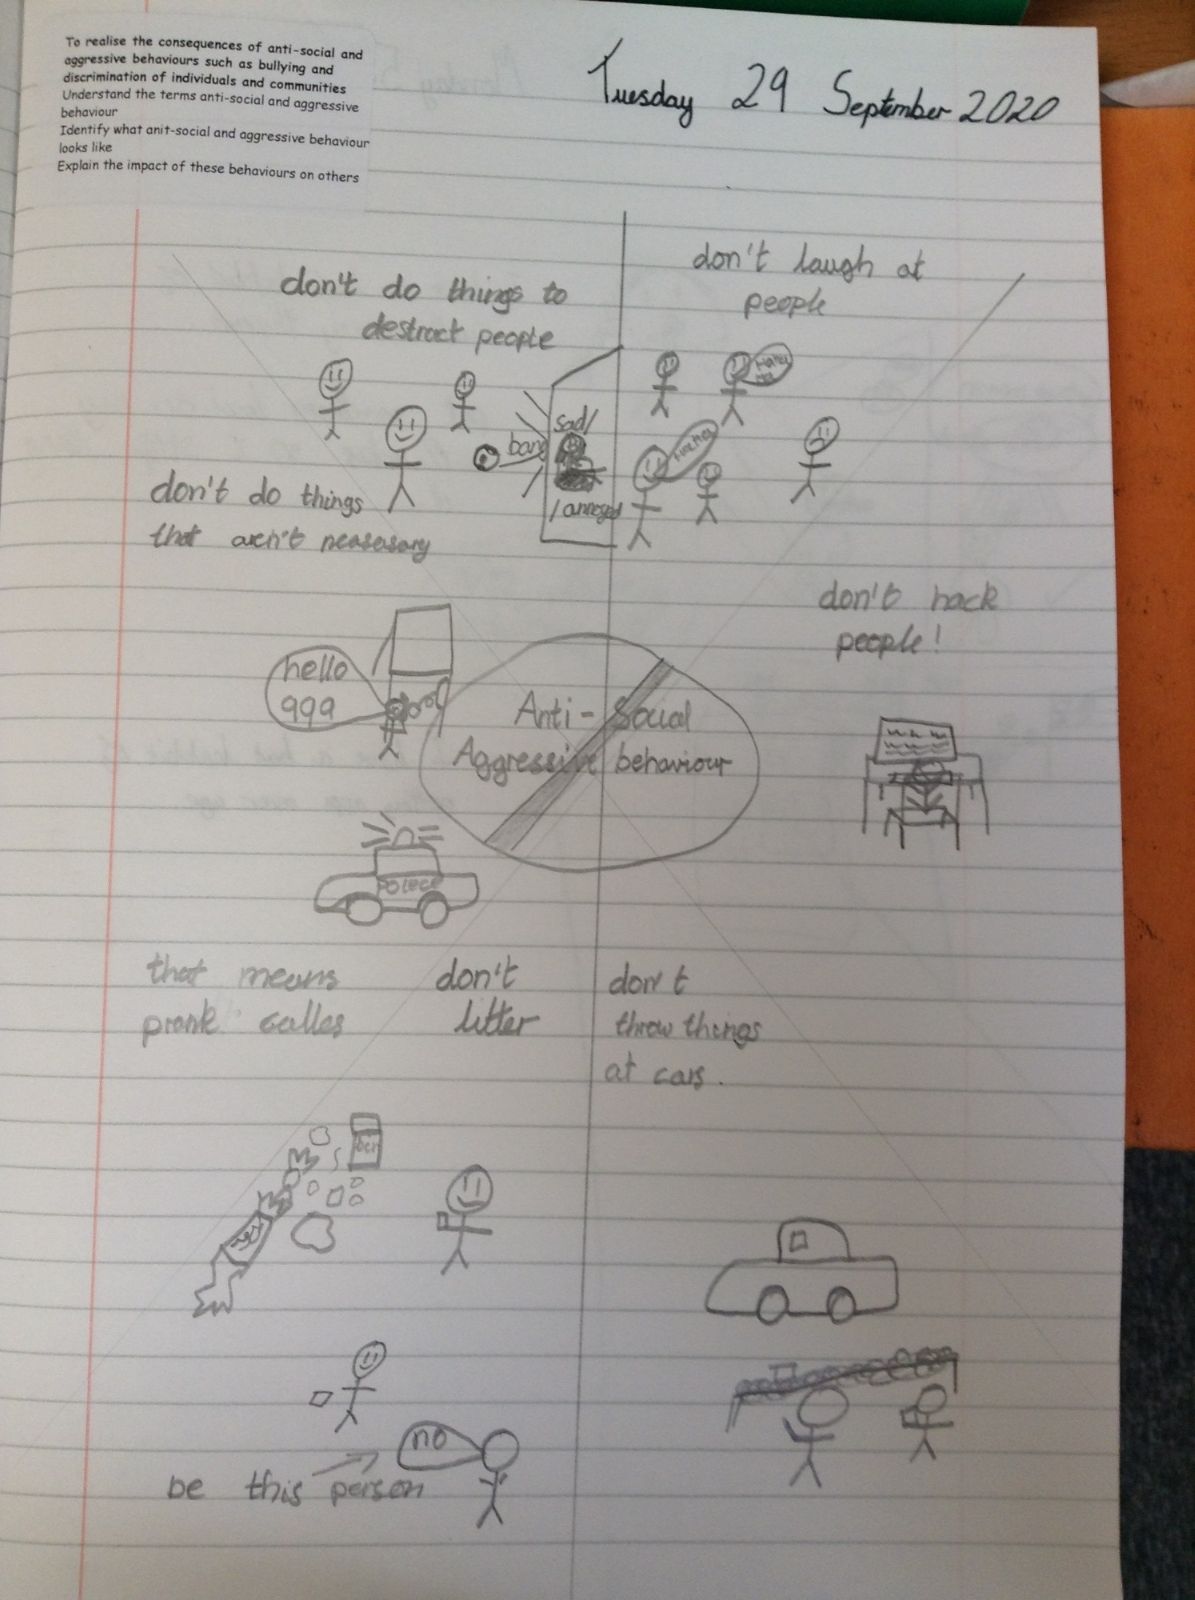 To realise the consequences of anti-social and
aggressive behaviours such as bullying and
discrimination of individuals and communities
Understand the terms anti-social and aggressive
behaviour
Identify what anit-social and aggressive behaviour
looks like
Explain the impact of these behaviours on others
Tuesday 29 September 2020
don't do things to
destract people
don't laugh at
people
Haha
Ha
bang
sad/
/annoyed
don't do things
that aren't neasesary
don't hack
people!
hello
999
Anti-Social
Aggressive behaviour
Polece
that means
prank calles
don't
litter
don't
throw things
at cars.
no
be this person